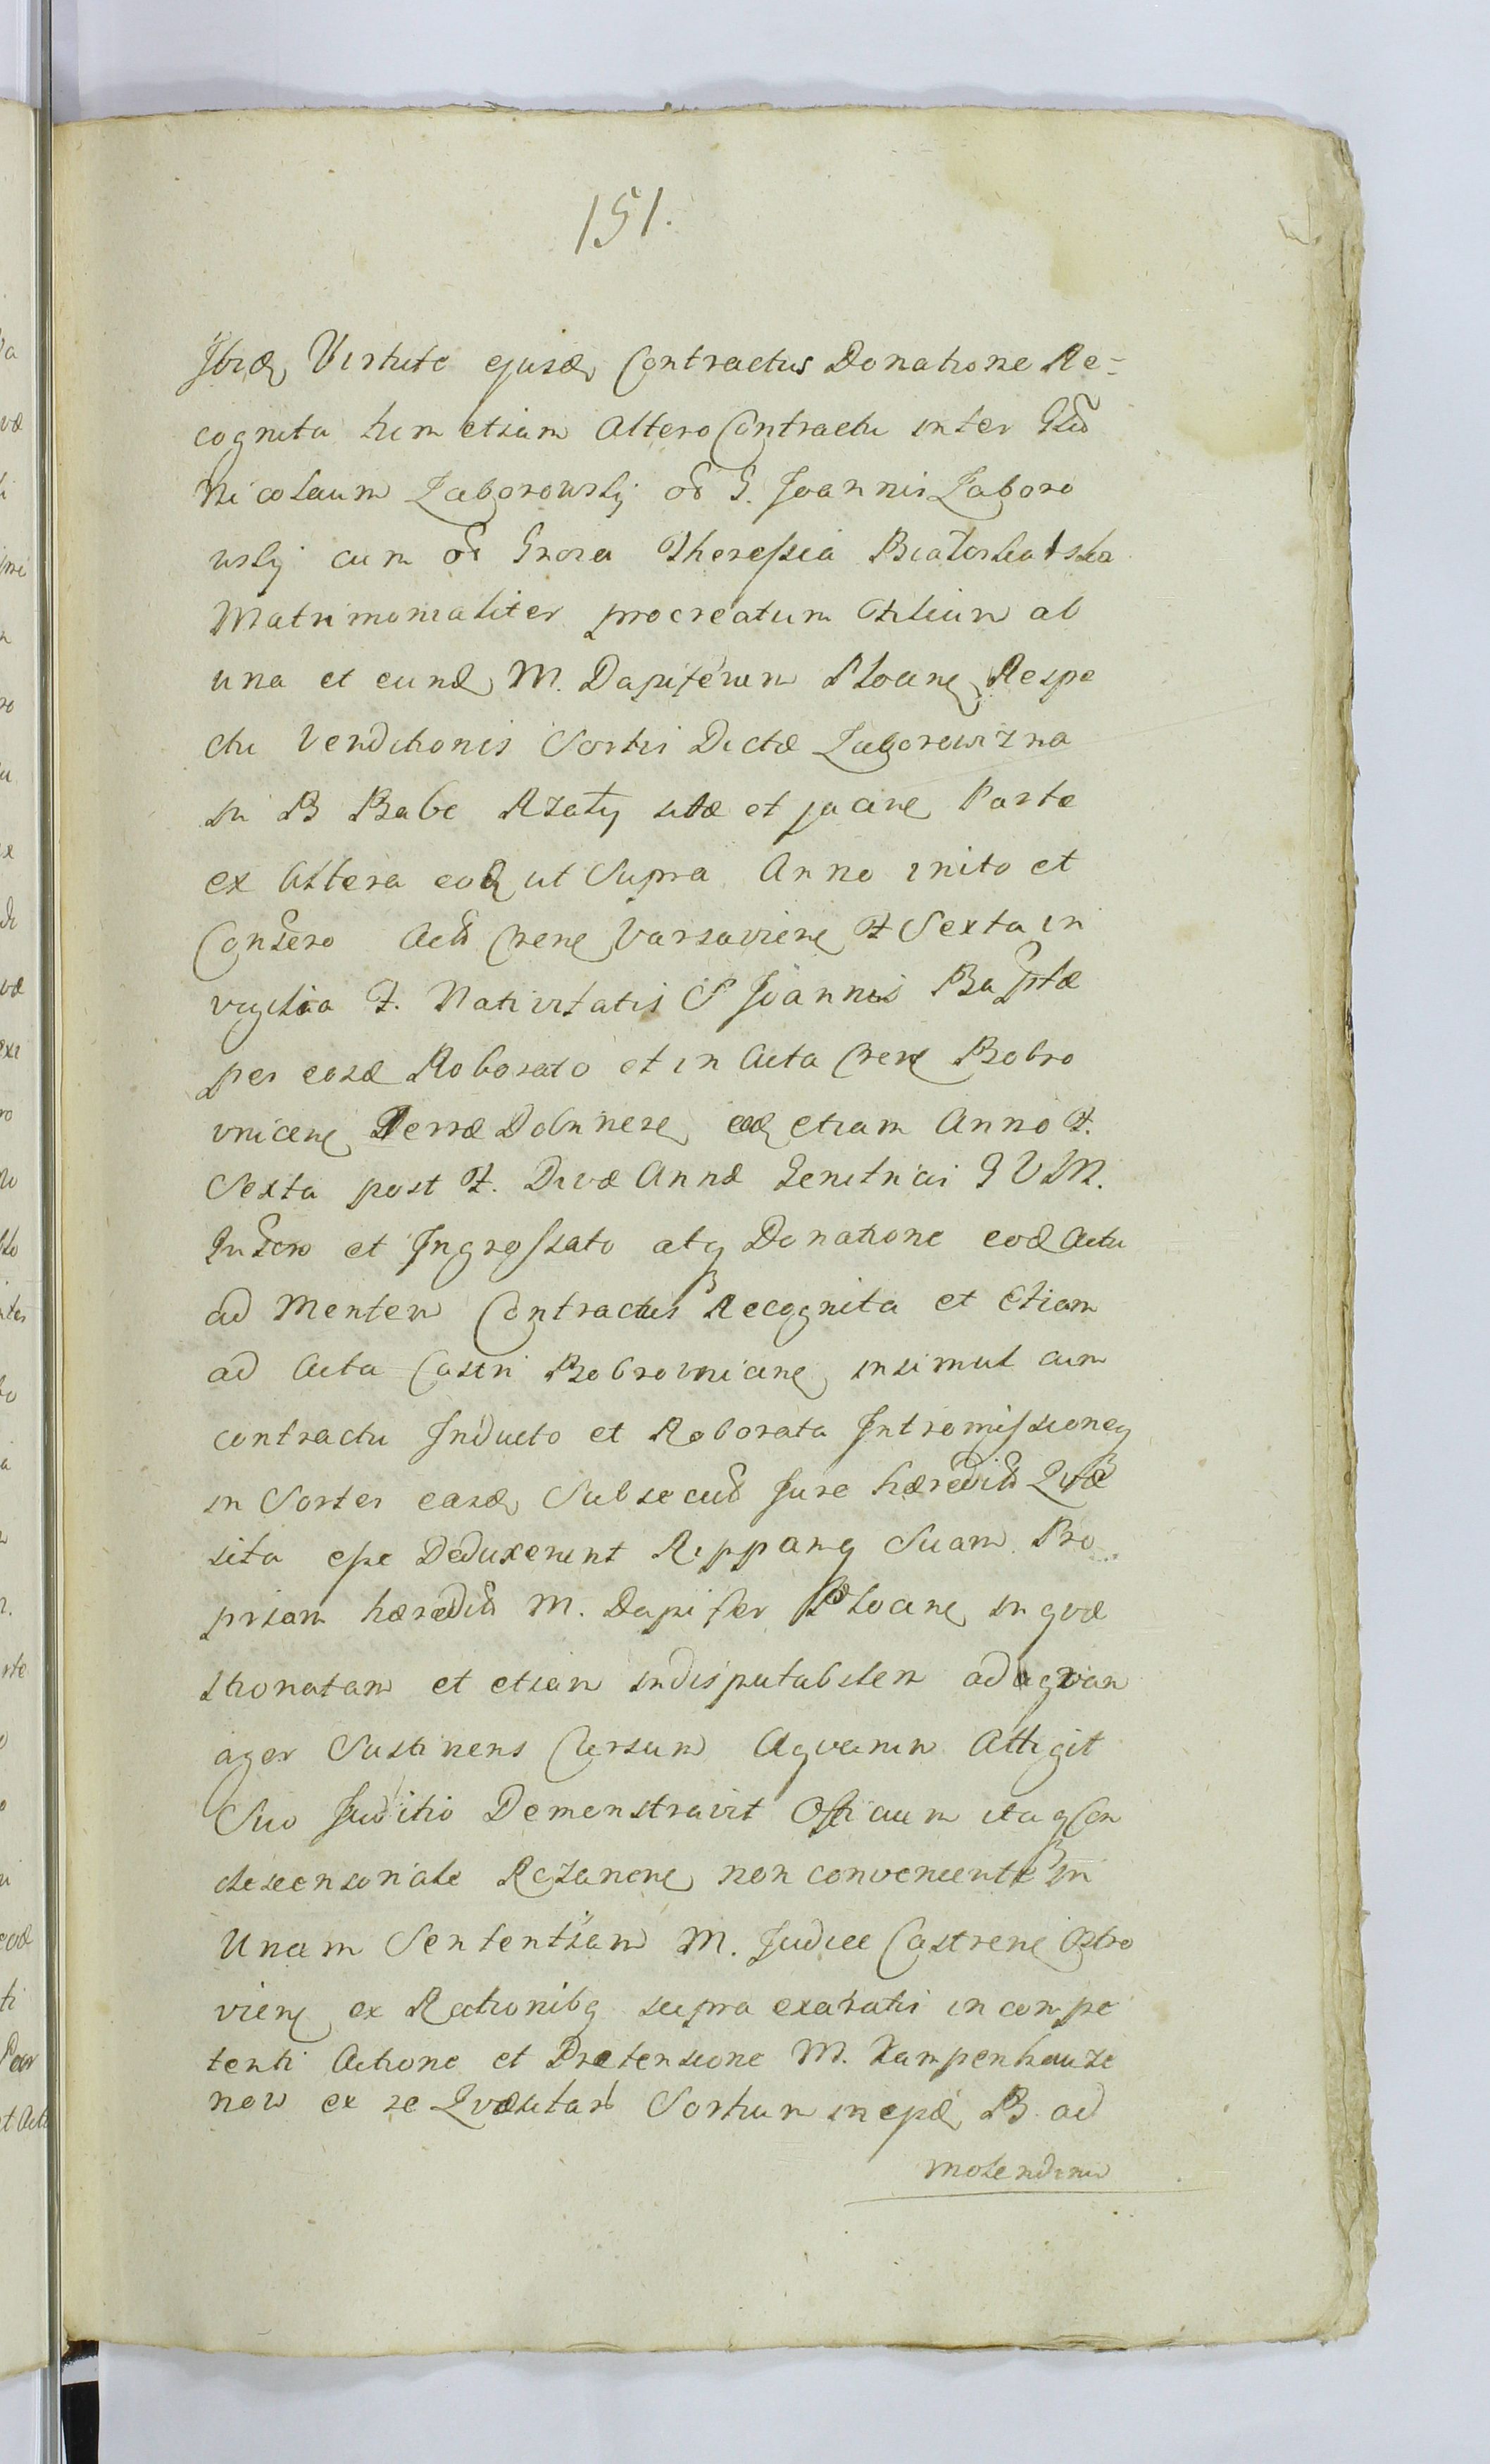 151.
Ibid Virtute ejusd Contractus Donatione Re-
cognita tum etiam Altero Contractu inter Gsū
Nicolaum Zaborowskj ol G. Joannis Zaboro
wskj cum ol Gnosa Theressia Białoskurska
Matrimonialiter procreatum Filium ab
una et eund M. Dapiferum Plocen Respe
ctu Venditionis Sortis Dictæ Zaborowizna
in B Babe Rzały sitæ et jacen Parte
ex Altera eod ut Supra Anno inito et
Conscro Actis Cren Varsavien F. Sexta in
vigilia F. Nativitatis S Joannis Baptæ
per eosd Roborato et in Acta Cren Bobro
wnicen Terræ Dobrinen eod etiam Anno F.
Sexta post F. Divæ Annæ Genitrici G V M.
In et Ingrossato atq Donatione eod Actu
ad Mentem Contractus Recognita et Etiam
ad Acta Castri Bobrownicen insimul cum
contractu Inducto et Roborata Intromissioneq
in Sortes easd Subsecuta Jure hæredit Qvæ
sita esse Deduxerunt Rippamq Suam Pro
priam hæredit M. Dapifer Plocen in qvæ
stionatam et etiam indisputabilem ad aqvam
ager Sustinens Cursum Aqvarum Attigit
Suo Juditio Demonstravit Officium itaq Con
descensoriale Rczanen non conveniente in
Unam Sententiam M. Judice Castren Ostro
vien ex Rationibq supra exaratis in compe
tenti Actione et Prætensione M. Kampenhauze
now ex re Qvæsitar Sortium in epd B. ad
molendinu